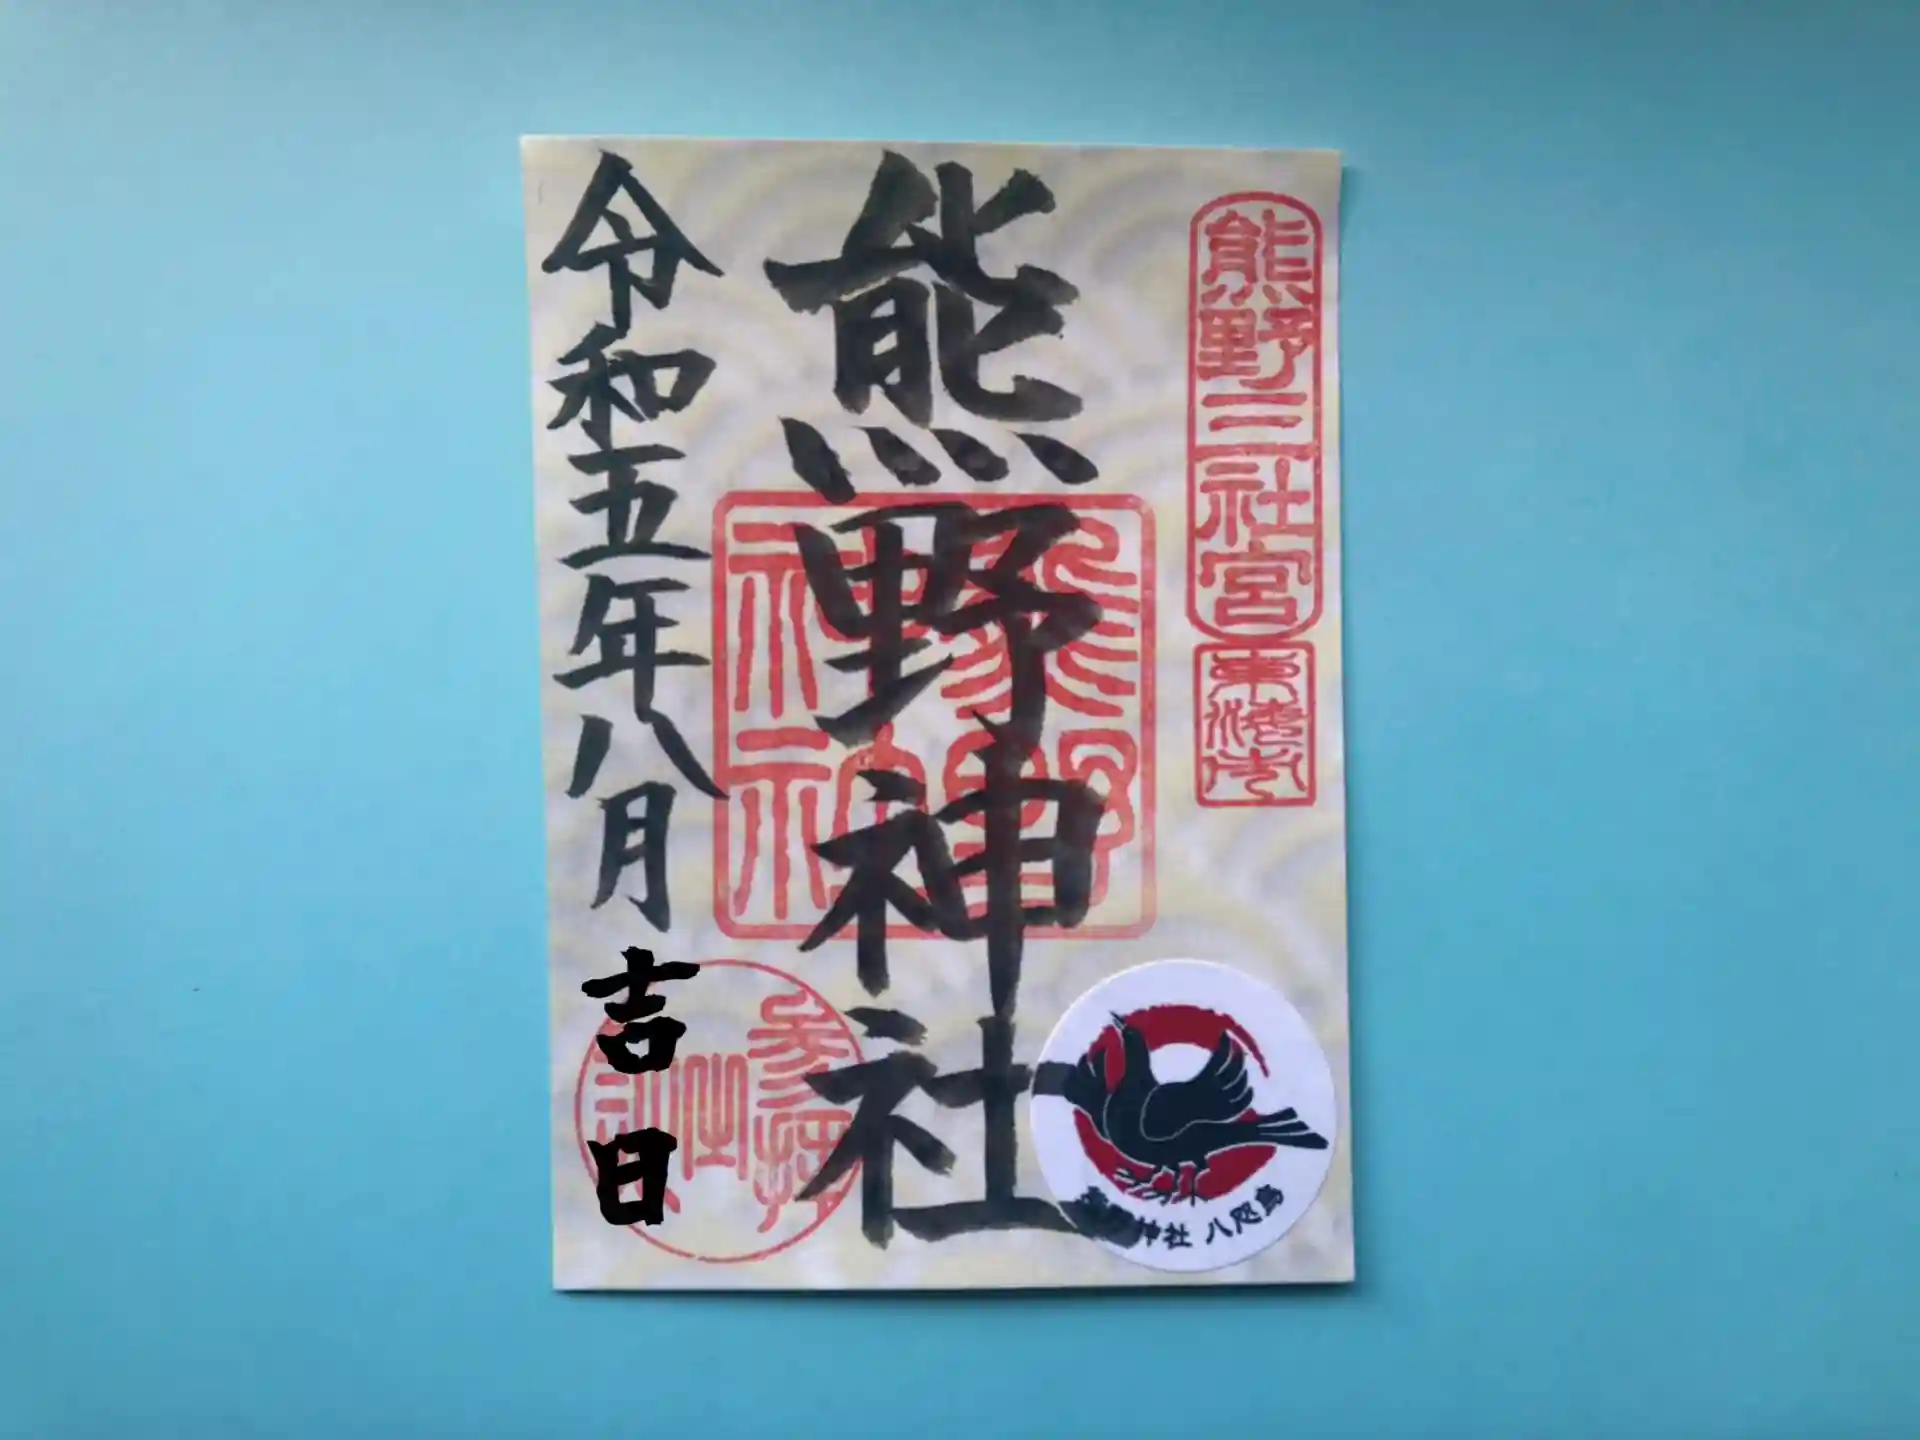 熊野三社宮
東海市
熊野神社
熊野神社
参拝之証
令和五年八月吉日
神社 八咫烏